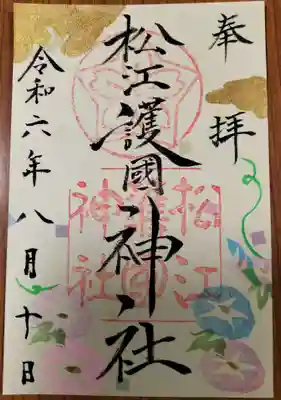 奉拝
松江護國神社
令和六年八月十日
松江
護國
神社